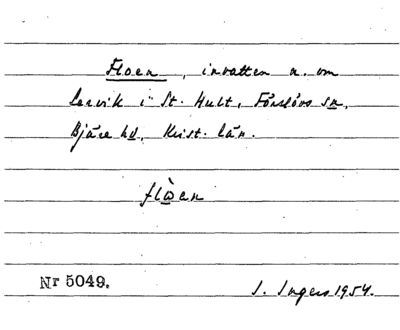 Floen, invatten n. om
Lervik i St. Hult, Förslövs sn,
Bjäre hd, Krist. län.
flòen
Nr 5049.
I. Ingers 1954.